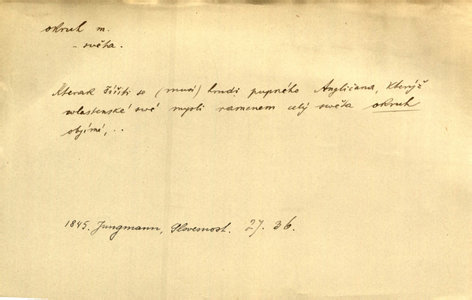 okruh m.
- světa.
Kterak šířiti se (musí) hrudi pupného Angličana, kterýž
wlastenské swé mysli ramenem celý swěta okruh
objímá,..
1845. Jungmann, Slovesnost. 27. 36.